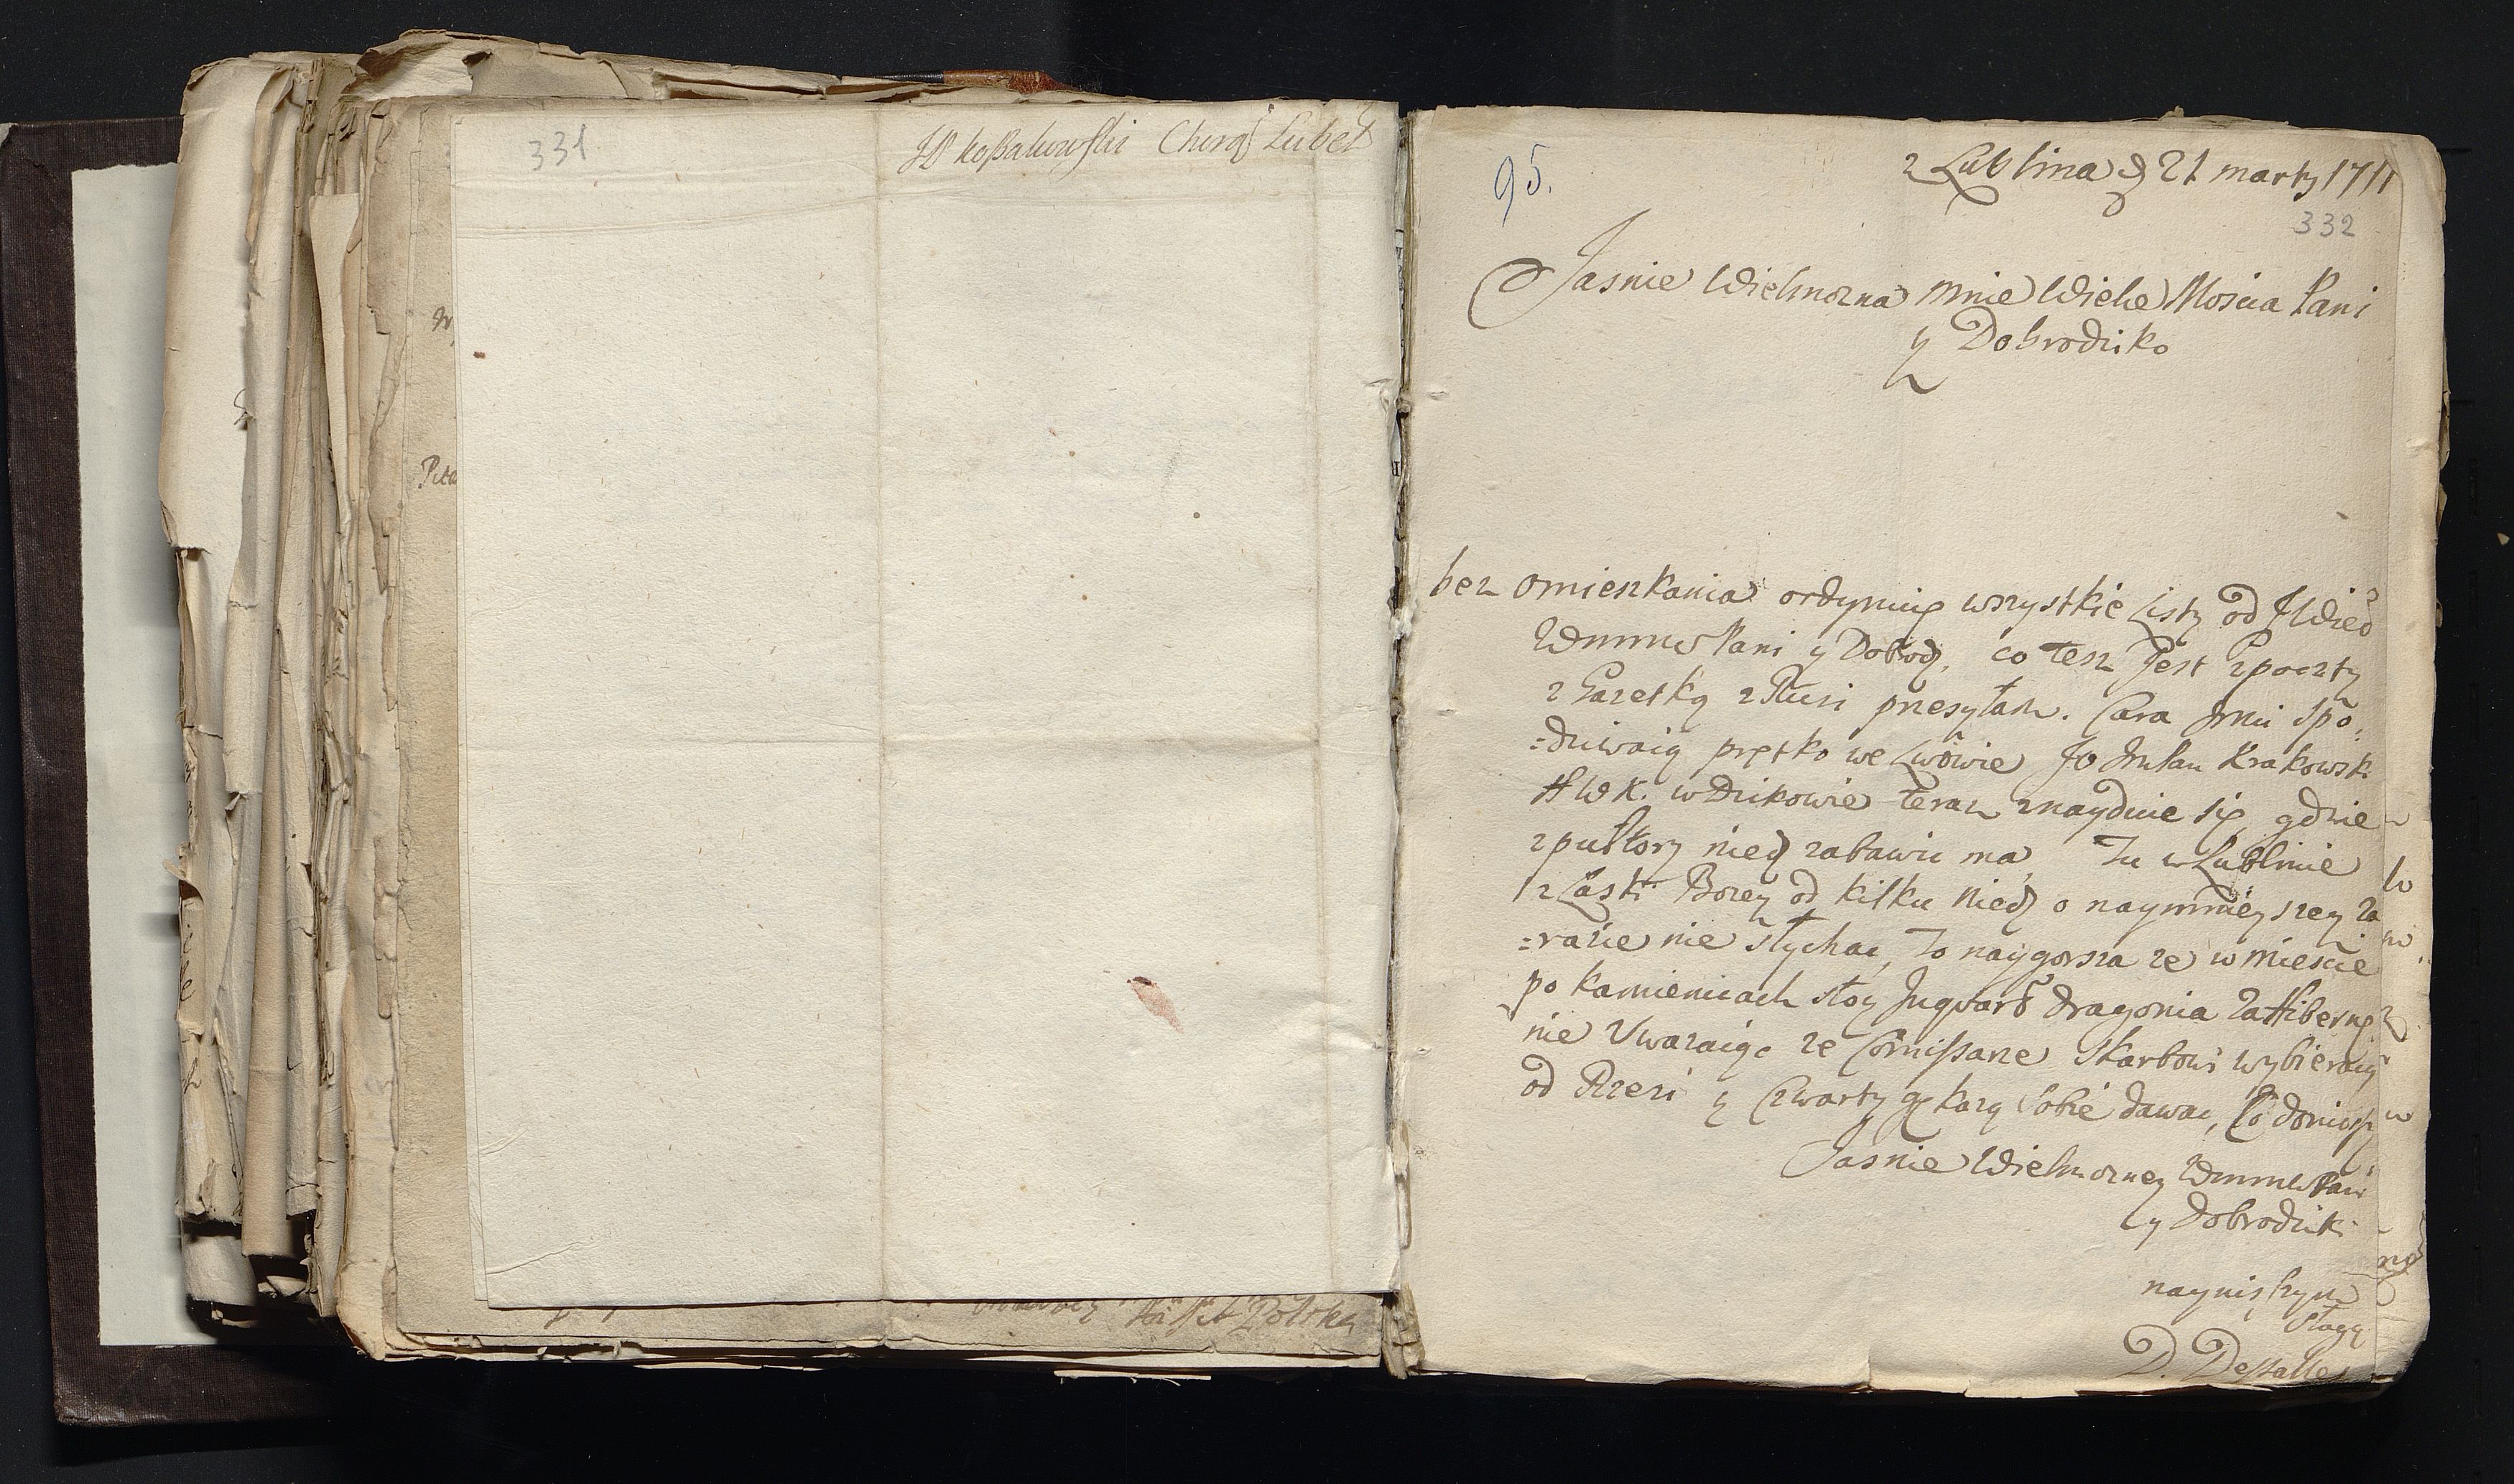 331
JP koßakowski Chorąż Lubel
95.
z Lublina d 21 marty 1711
332
Jasnie Wielmozna mnie Wielce Moscia Pani
y Dobrodziko
bez omieszkania ordynuię wszystkie Listy od JWied
Wmmw Pani y Dobrodz. co tesz Jest zpoczty
z Gazetką z Rusi przesyłam. Cara Jmci spo
=dziwaią prętko we Lwowie Jo Jm Pan Krakowsk
HWK. w Dzikowie teraz znayduie się gdzie
zpułtory nied zabawic ma Tu w Lublinie
z Łaski Bozey od kilku nied o naymnieyszey za
=razie nie słychac, to naygorsza ze w miescie
po kamienicach stoy Jngward dragonia za Hibernę
nie Vwazaiąc ze Comissarze skarbowi wybieraią
od Rzezi y czwarty g kazą sobie dawac, Co doniosp
Jasnie Wielmozney Wmmw Pani
y Dobrodziki
nayniszszym
sługą
D. Dessalles
Polska